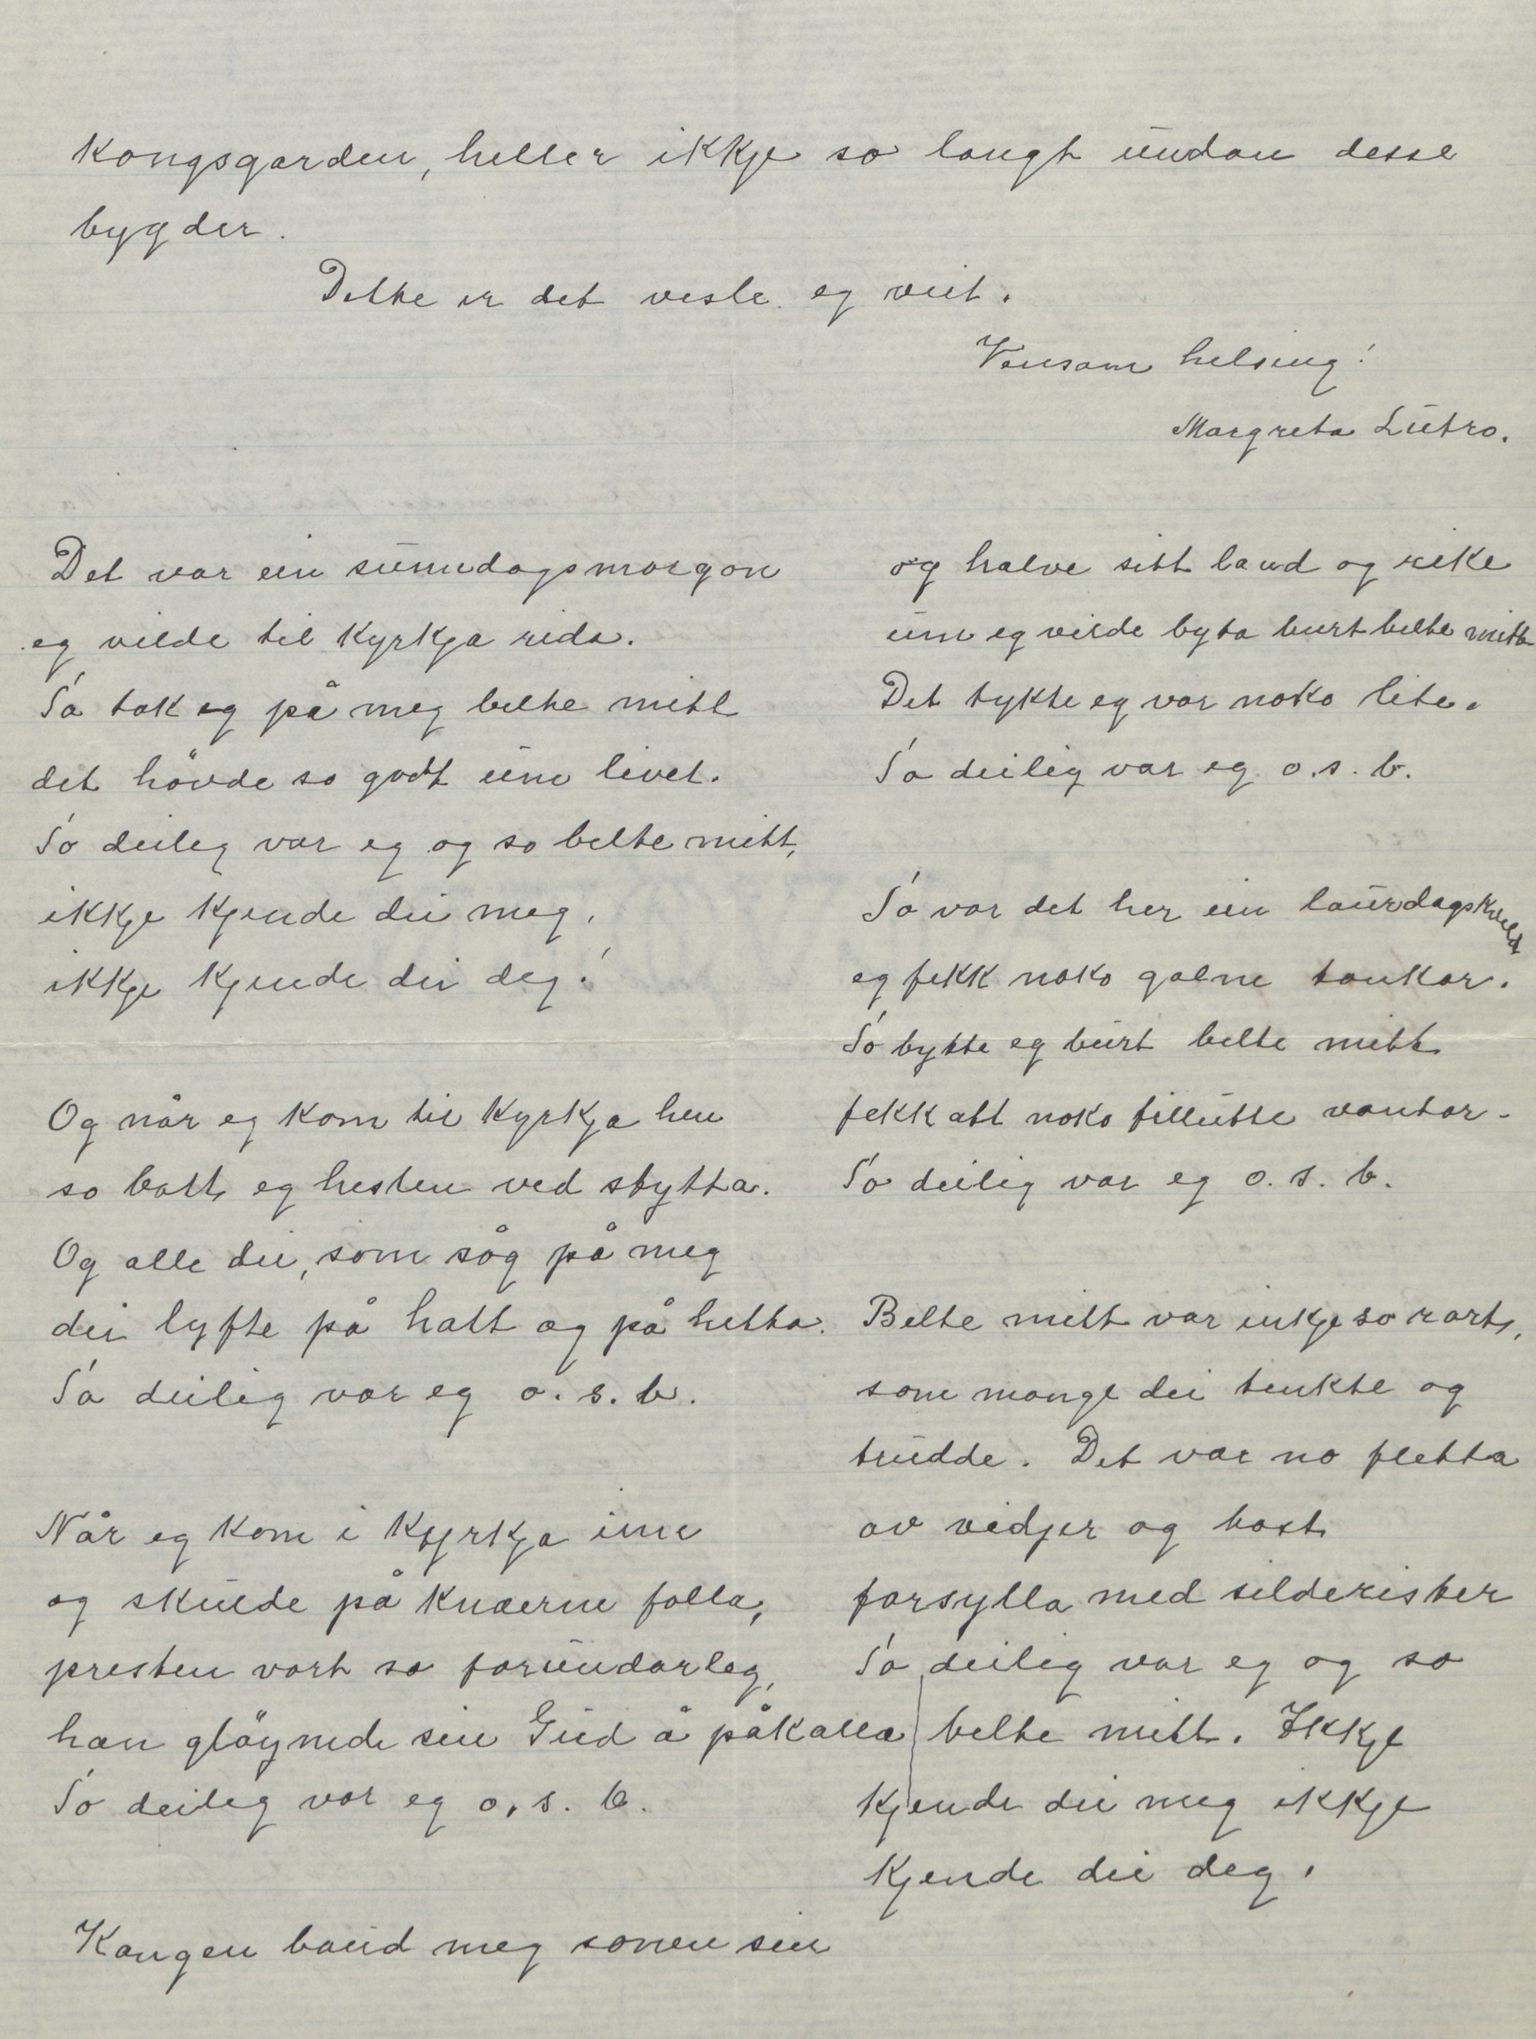 kongsgarden, heller ikkje so langt undan desse
bygder.
Dette er det vesle eg veit.
Vensam helsing!
Margreta Lutro.
Det var ein sunndagsmorgon
eg vilde til kyrkja rida.
So tok eg på meg belte mitt
det hövde so godt um livet.
So deileg var eg og so belte mitt,
ikkje kjende dei meg,
ikkje kjende dei deg!
Og når eg kom til kyrkja hen
so batt eg hesten ved stytta.
Og alle dei, som såg på meg
dei lyfte på hatt og på hetta.
So deilig var eg o.s.b.
Når eg kom i kyrkja inn
og skulde på knaerne falla,
presten vart so forundarleg,
han glöymde sin Gud å påkalla
So deileg var eg o.s.b.
Kongen baud meg sonen sin
og halve sitt land og rike
um eg vilde byta burt belte mitt
Det tykte eg var noko lite.
So deilig var eg o.s.b.
So var det her ein laurdagskveld
eg fekk noko galne tankar.
So bytte eg burt belte mitt
fekk att noko fillutte vantar.
So deilig var eg o.s.b.
Belte mitt var inkje so rart,
som mange dei tenkte og
trudde. Det var no fletta
av vidjer og bast
forsylla med silderister
So deilig var eg og so
belte mitt. Ikkje
kjende dei meg ikkje
kjende dei deg.